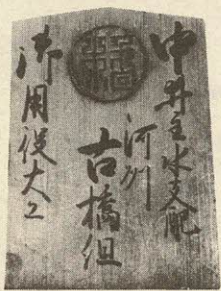 中井主水支配
河州
古橋組
御用役大工